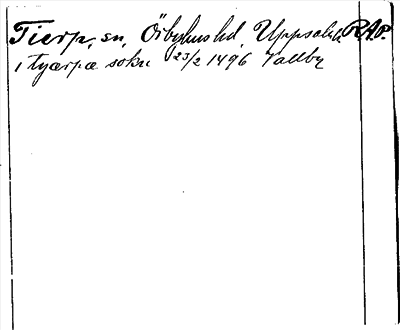 Tierp, sn, Örbyhus hd, Uppsala l. RAP.
i tyærpæ sokn 23/2 1496 Vallby